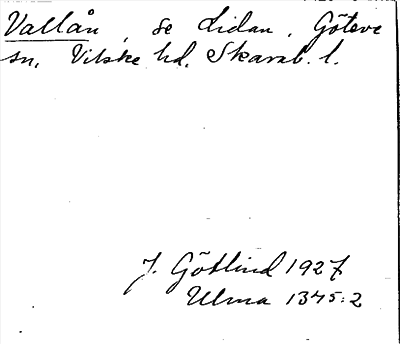 Vallån, se Lidan. Göteve
sn. Vilske hd. Skarab. l.
J. Götlind 1927
Ulma 1345:2